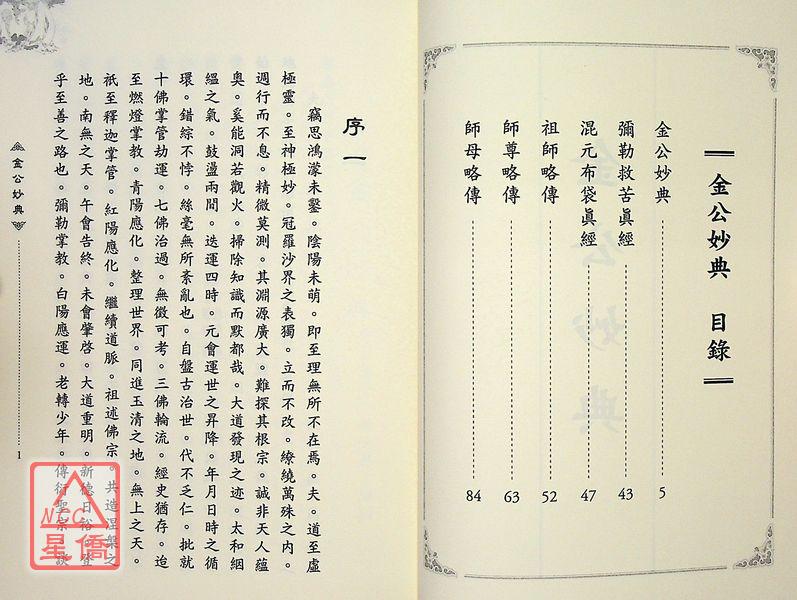 金公妙典 目錄
金公妙典 5
彌勒救苦眞經 43
混元布袋眞經 47
祖師略傳 52
師尊略傳 63
師母略傳 84
序一
竊思鴻濛未鑿。陰陽未萌。即至理無所不在焉。夫。道至虛
極靈。至神極妙。冠羅沙界之表獨。立而不改。繚繞萬殊之內。
週行而不息。精微莫測。其淵源廣大。難探其根宗。誠非天人蘊
奧。奚能洞若觀火。掃除知識而默都哉。大道發現之迹。太和絪
縕之氣。鼓盪兩間。迭運四時。元會運世之昇降。年月日時之循
環。錯綜不悖。絲毫無所紊亂也。自盤古治世。代不乏仁。批就
十佛掌管劫運。七佛治過。無徵可考。三佛輪流。經史猶存。迨
至燃燈掌教。青陽應化。整理世界。同進玉清之地。無上之天。
祇至釋迦掌管。紅陽應化。繼續道脈。祖述佛宗。共造涅槃之
地。南無之天。午會告終。未會肇啓。大道重明。新德日裕。登
乎至善之路也。彌勒掌教。白陽應運。老轉少年。傳衍聖宗。談
金公妙典
1
NCC
星僑